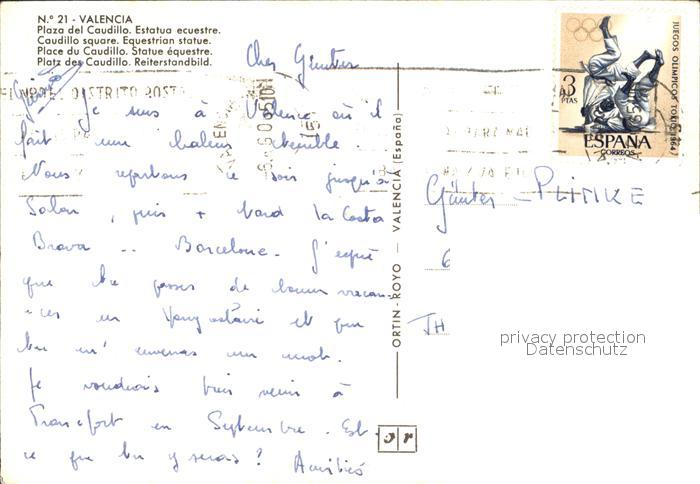 N.º 21 - VALENCIA
Plaza del Caudillo. Estatua ecuestre.
Caudillo square. Equestrian statue.
Place du Caudillo. Statue équestre.
Platz des Caudillo. Reiterstandbild.
Cher Günter
Je suis à Valence où il
fait une chaleur terrible.
Nous repartons ce soir jusqu'à
Salou, puis + Nord la Costa
Brava -- Barcelone. J'espère
que tu passes de bonnes vacan-
-ces en Yougoslavie et que
tu m'enverras un mot.
Je voudrais bien venir à
Francfort en Septembre. Est-
ce que tu y seras? Amitiés
ORTIN-ROYO — VALENCIA (España)
or
3
PTAS
JUEGOS OLIMPICOS TOKIO 1964
ESPAÑA
CORREOS
DISTRITO POSTAL
Günter - PLINKE
6
TH
privacy protection
Datenschutz